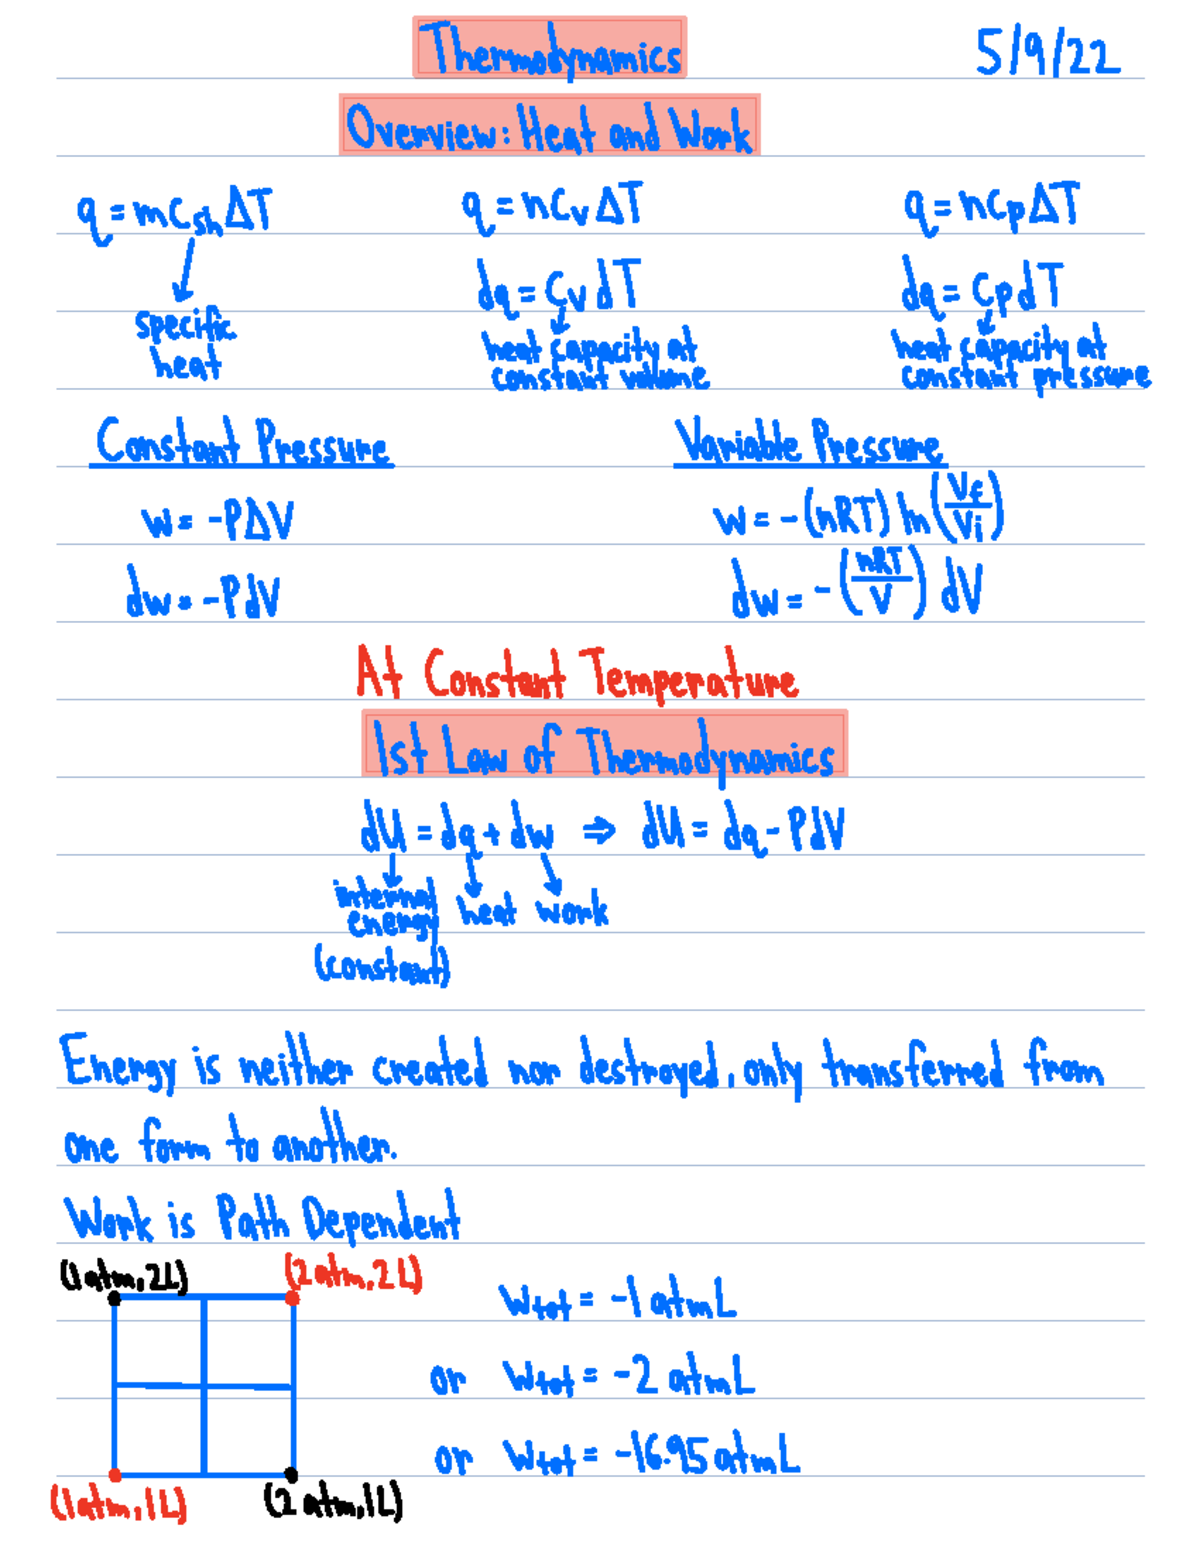 Thermodynamics 5/9/22
Overview: Heat and Work
q = mc_sh ΔT q = nC_v ΔT q = nC_p ΔT
dq = C_v dT dq = C_p dT
specific heat capacity at heat capacity at
heat constant volume constant pressure
Constant Pressure Variable Pressure
w = -PΔV w = -(nRT) ln(V_f/V_i)
dw = -PdV dw = -(nRT/V) dV
At Constant Temperature
1st Law of Thermodynamics
dU = dq + dw ⇒ dU = dq - PdV
internal heat work
energy
(constant)
Energy is neither created nor destroyed, only transferred from
one form to another.
Work is Path Dependent
(1atm, 2L) (2atm, 2L)
W_tot = -1 atmL
or W_tot = -2 atmL
or W_tot = -16.95 atmL
(1atm, 1L) (2atm, 1L)